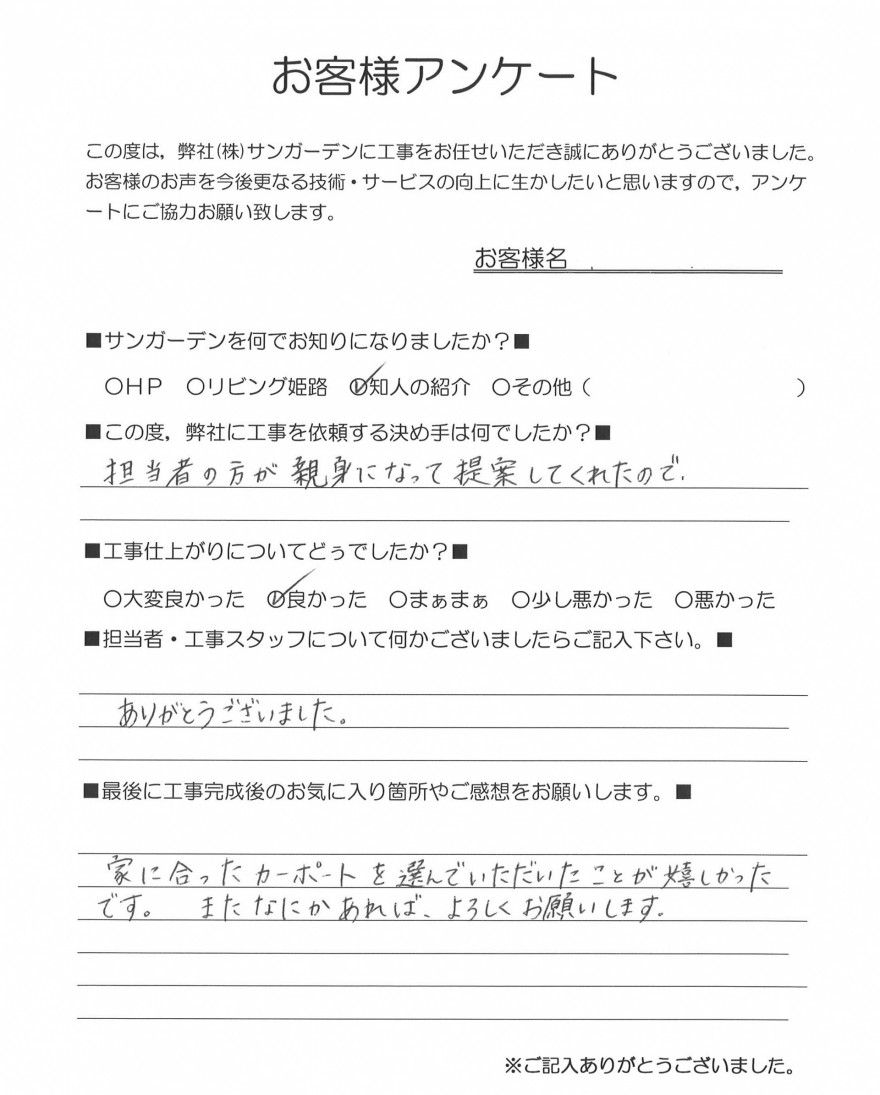 お客様アンケート
この度は，弊社(株)サンガーデンに工事をお任せいただき誠にありがとうございました。
お客様のお声を今後更なる技術・サービスの向上に生かしたいと思いますので，アンケ
ートにご協力お願い致します。
お客様名
■サンガーデンを何でお知りになりましたか？■
○ＨＰ ○リビング姫路 ○知人の紹介 ○その他（ ）
■この度，弊社に工事を依頼する決め手は何でしたか？■
担当者の方が親身になって提案してくれたので.
■工事仕上がりについてどぅでしたか？■
○大変良かった ○良かった ○まぁまぁ ○少し悪かった ○悪かった
■担当者・工事スタッフについて何かございましたらご記入下さい。■
ありがとうございました。
■最後に工事完成後のお気に入り箇所やご感想をお願いします。■
家に合ったカーポートを選んでいただいたことが嬉しかった
です。 またなにかあれば、よろしくお願いします.
※ご記入ありがとうございました。